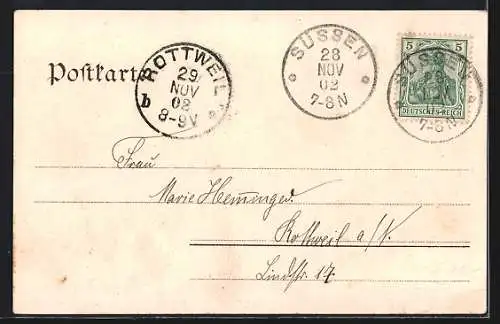 Postkarte
ROTTWEIL
29
NOV
02
8-9V
b
SÜSSEN
28
NOV
02
7-8N
5 5
DEUTSCHES REICH
SÜSSEN
7-8N
Frau
Marie
Rottweil a/N.
Lindstr. 17